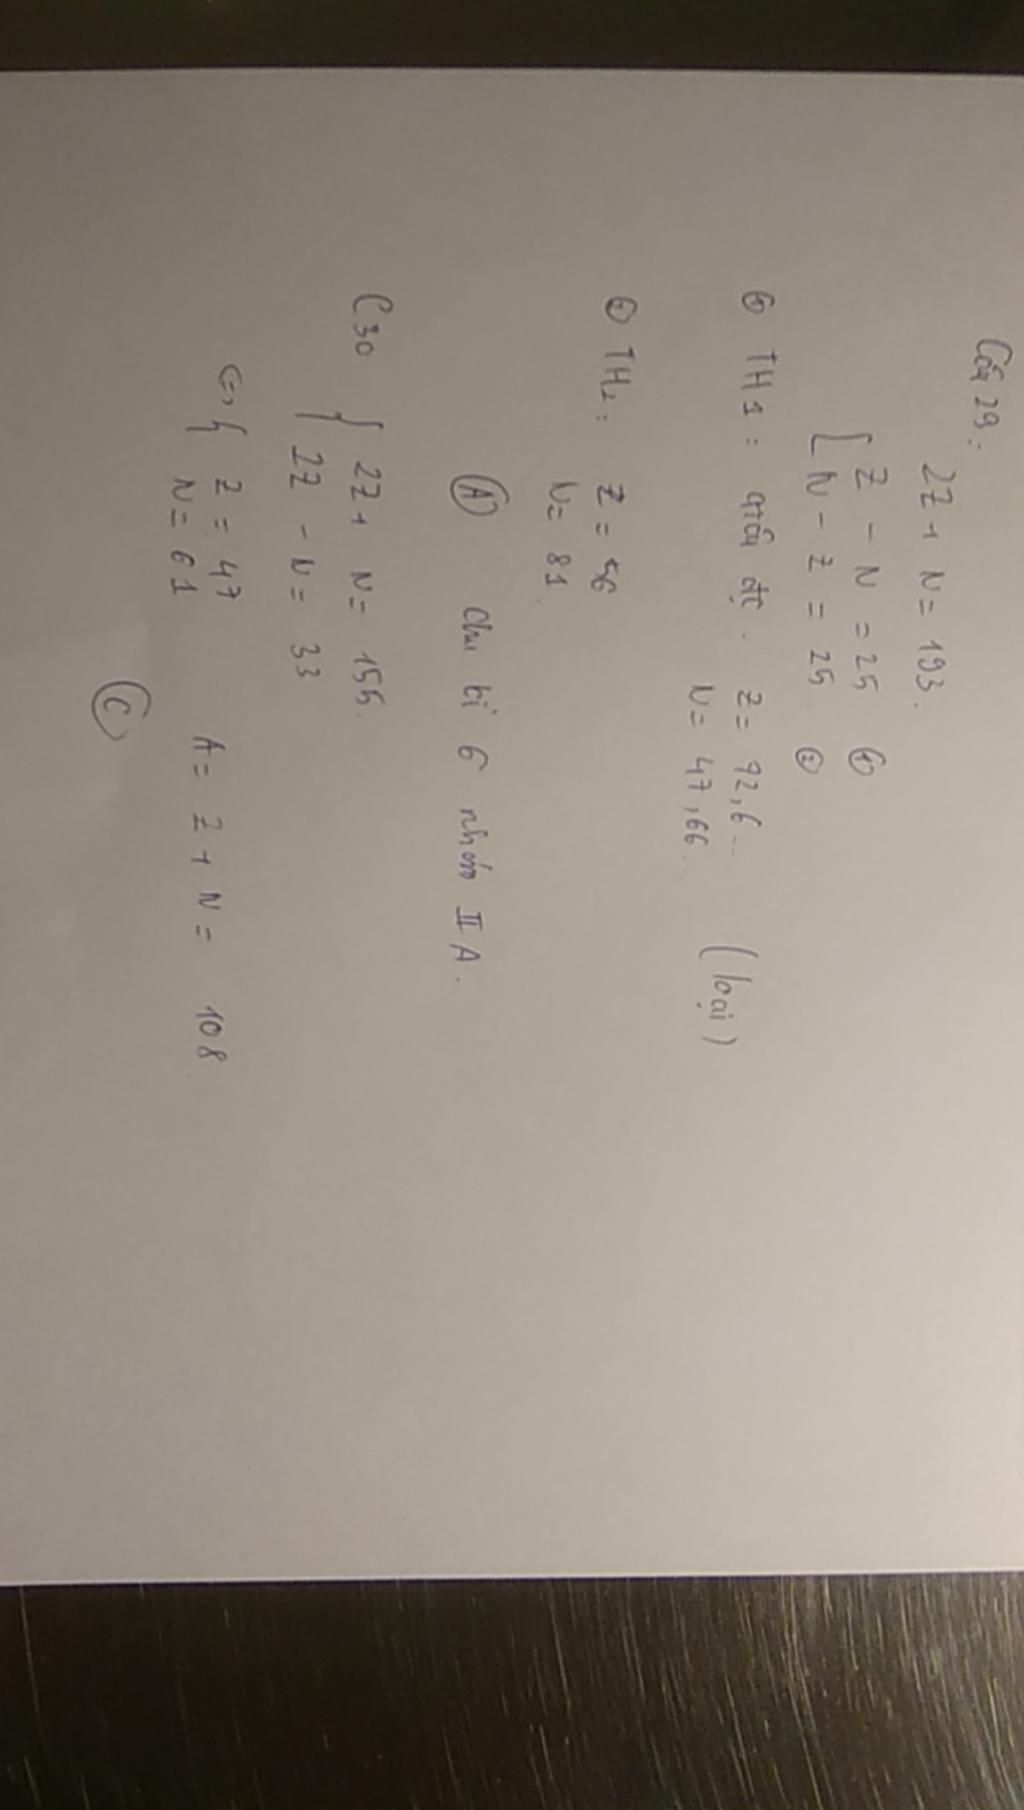 Câu 29:
2Z + N = 193.
Z - N = 25 ①
N - Z = 25 ②
① TH1: giải đc. Z = 72,6...
N = 47,66... (loại)
② TH2: Z = 56
N = 81.
Ⓐ Chu kì 6 nhóm II A.
C30 { 2Z + N = 155.
2Z - N = 33
<=> { Z = 47
N = 61
A = Z + N = 108
Ⓒ